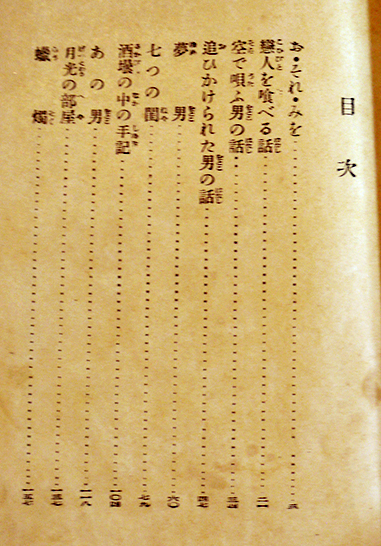 目次
お・それ・みを……三
戀人を喰べる話……二一
空で唄ふ男の話……三四
追ひかけられた男の話……四七
夢男……六〇
七つの閨……七九
酒壜の中の手記……一〇四
あの男……一一八
月光の部屋……一三七
蠟燭……一五七